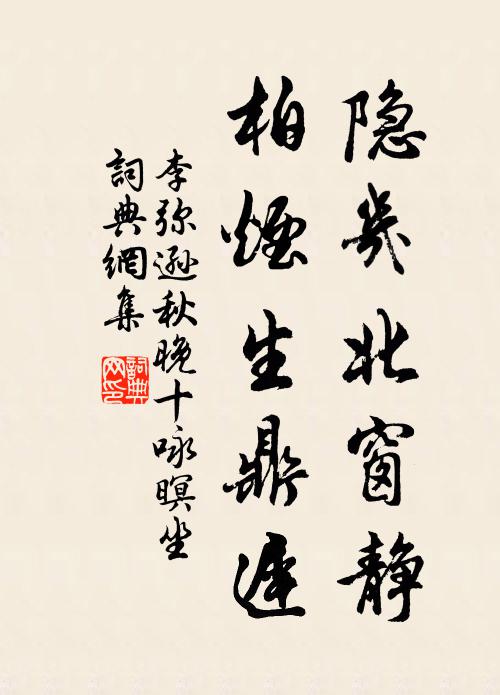 隐几北窗静
柏煙生鼎遲
李弥逊秋晚十咏暝坐
詞典網集
詞典網印